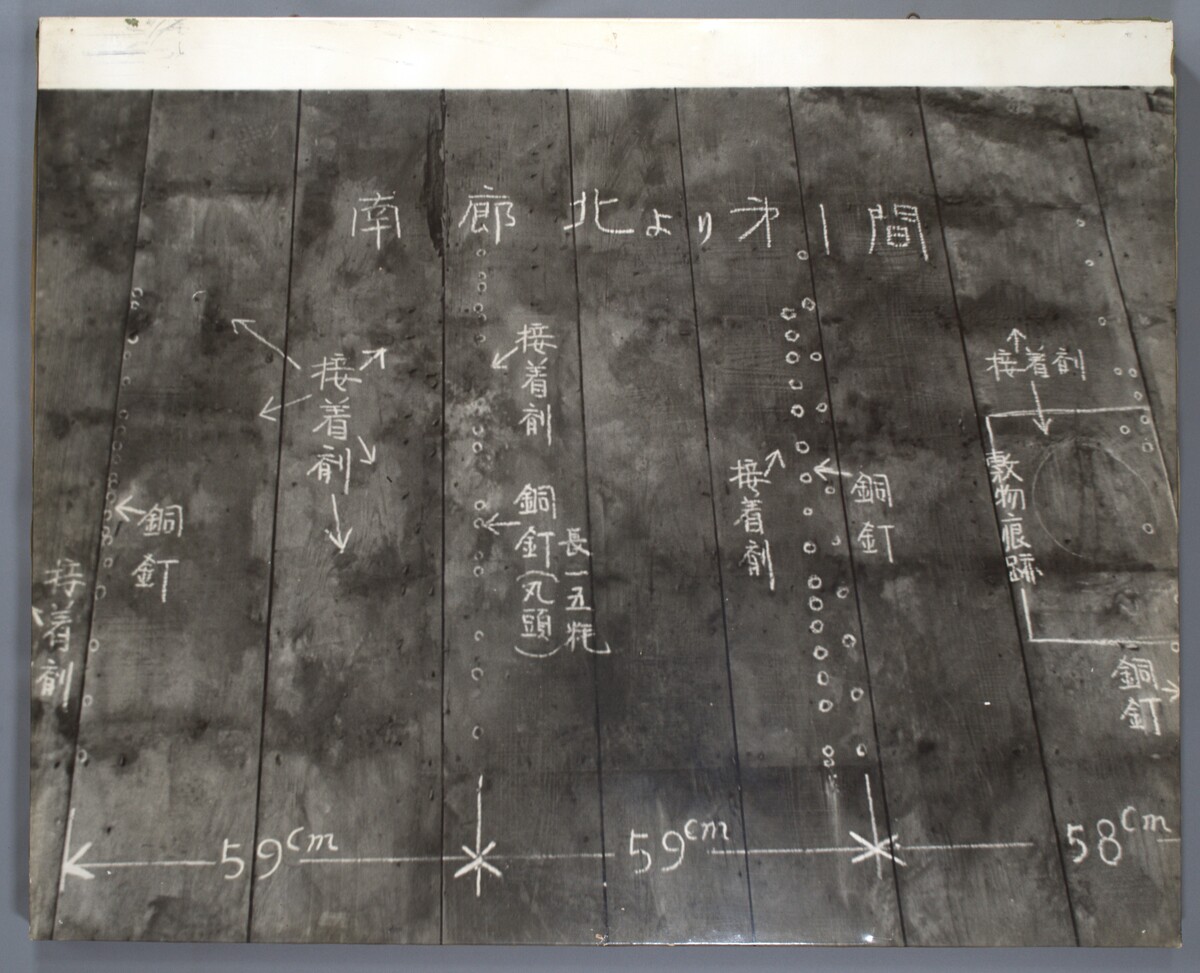 南廊北より㐧一間
接着剤
銅釘
接着剤
接着剤
銅釘(丸頭)
長一五粍
接着剤
銅釘
接着剤
敷物痕跡
銅釘
59cm
59cm
58cm